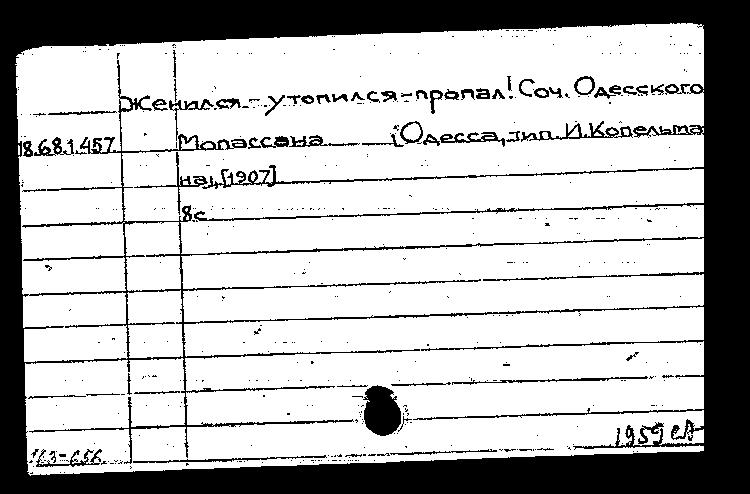 Женился-утопился-пропал! Соч. Одесского
18.68.1.457 Мопассана (Одесса, тип. И. Копельма
на), [1907]
8с.
163-656
1959